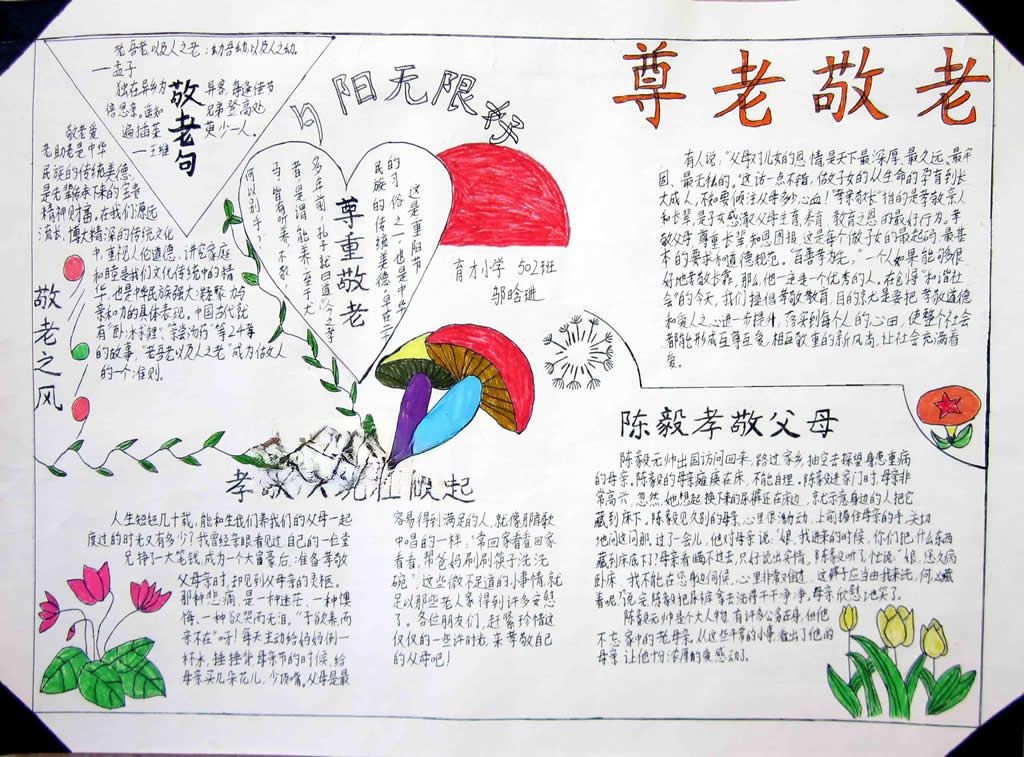 尊老敬老
夕阳无限美
老吾老以及人之老；幼吾幼以及人之幼。
—孟子
敬老句
独在异乡为异客，每逢佳节
倍思亲。遥知兄弟登高处
遍插茱萸少一人。
—王维
敬老之风
敬老爱
老助老是中华
民族的传统美德，
是先辈传承下来的宝贵
精神财富。在我们源远
流长，博大精深的传统文化
中，重视人伦道德、讲究家庭
和睦是我们文化传统中的精
华，也是中华民族强大凝聚力与
亲和力的具体表现。中国古代就
有“卧冰求鲤”、“亲尝汤药”等24孝
的故事，“老吾老以及人之老”成为做人
的一个准则。
尊重敬老
这是重阳节
的习俗之一，也是中华
民族的传统美德。早在二千
多年前，孔子就曰道：“今之孝
者，是谓能养。至于犬
马，皆有所养，不敬，
何以别乎？”
育才小学 502班
邬晗进
有人说：“父母对儿女的恩情是天下最深厚、最久远、最牢
固、最无私的。”这话一点不错，做子女的从生命的孕育到长
大成人，不知要倾注父母多少心血！“孝亲敬长”指的是孝敬亲人
和长辈，是子女感激父母生育、养育、教育之恩的最好行为。孝
敬父母，尊重长辈知恩图报，这是每个做子女的最起码、最基
本的要求和道德规范。“百善孝为先。”一个人如果能够很
好地孝敬长辈，那么他一定是一个优秀的人。在创导“和谐社
会”的今天，我们提倡孝敬教育，目的就是要把孝敬道德
和爱人之心进一步提升，落实到每个人的心田，使整个社会
都能形成互尊互爱，相互敬重的新风尚，让社会充满着
爱。
陈毅孝敬父母
陈毅元帅出国访问回来，路过家乡，抽空去探望身患重病
的母亲。陈毅的母亲瘫痪在床，不能自理。陈毅进家门时，母亲非
常高兴，忽然她想起换下来的尿裤还在床边，就示意身边的人把它
藏到床下。陈毅见久别的母亲，心里很激动，上前握住母亲的手，关切
地问这问那。过了一会儿，他对母亲说：“娘，我进来的时候，你们把什么东西
藏到床底下了？”母亲看瞒不过去，只好说出实情。陈毅听了，忙说：“娘，您久病
卧床，我不能在您身边伺候，心里非常难过，这裤子应当由我来洗，何必藏
着呢？”说完陈毅把尿裤拿去洗得干干净净，母亲欣慰地笑了。
陈毅元帅是个大人物，有许多公务在身，但他
不忘家中的老母亲，从这些平常的小事，看出了他的
母亲，让他十分浓厚的爱感动了。
人生短短几十载，能和生我们养我们的父母一起
度过的时光又有多少？我曾经亲眼看见过自己的一位堂
兄挣了一大笔钱，成为一个大富豪后，准备孝敬
父母亲时，却见到父母亲的灵柩。
那种悲痛，是一种迷茫，一种懊
悔，一种欲哭而无泪。“子欲养而
亲不在”呀！每天主动给妈妈倒一
杯水，捶捶背，母亲节的时候，给
母亲买几朵花儿，少顶嘴。父母是最
容易得到满足的人，就像那首歌
中唱的一样，“常回家看看回家
看看，帮爸妈刷刷筷子洗洗
碗”，这些微不足道的小事情，就
足以那些老人家得到许多安慰
了。各位朋友们，赶紧珍惜这
仅仅的一些许时光，来孝敬自己
的父母吧！